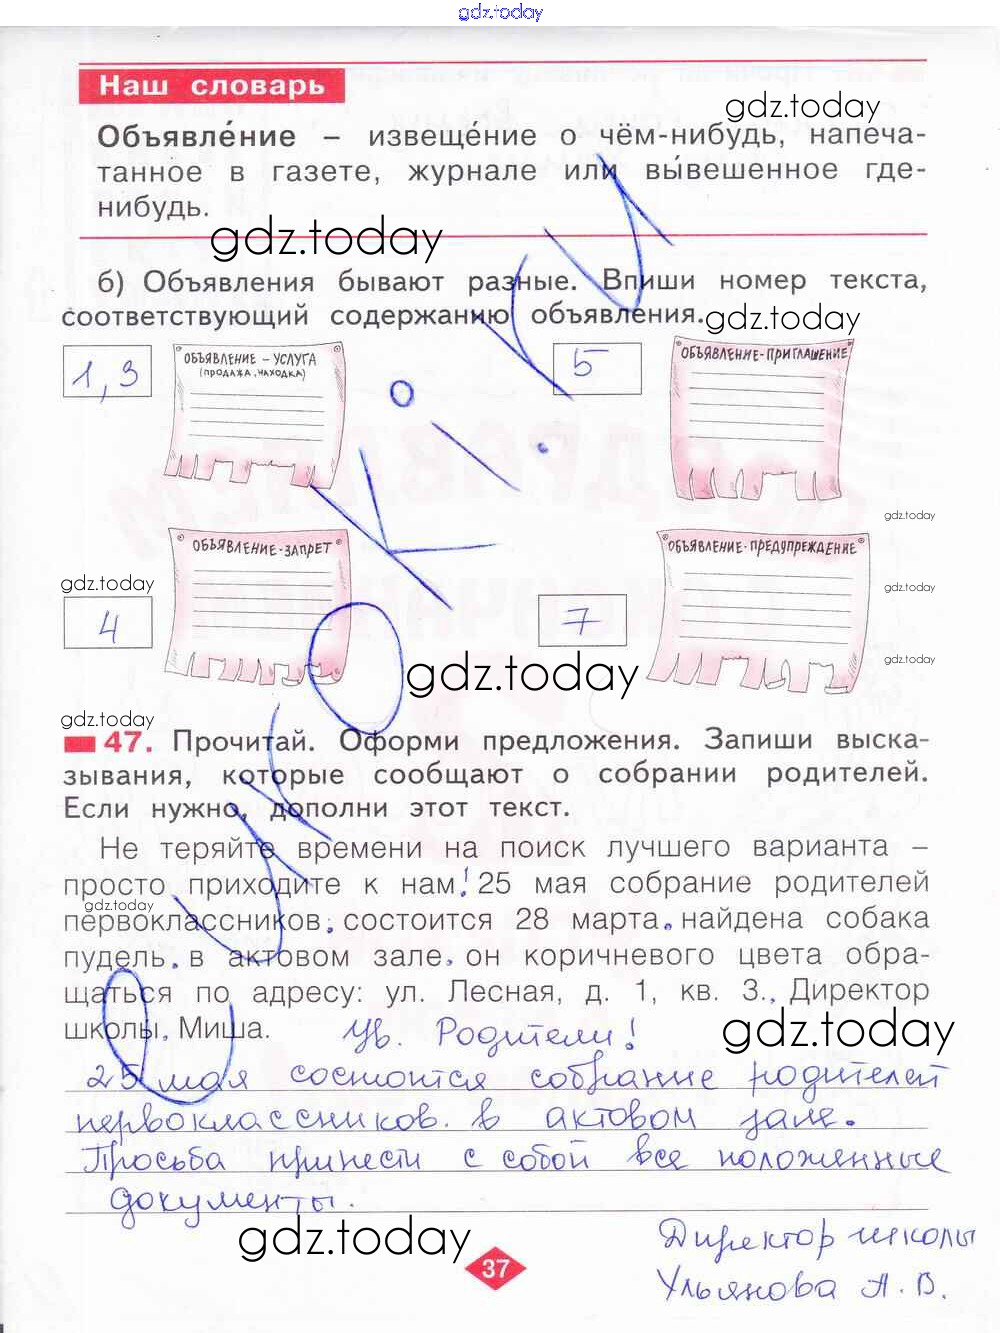 gdz.today
Наш словарь
gdz.today
Объявле́ние – извеще́ние о чём-нибудь, напеча-
танное в газете, журнале или вы́вешенное где-
нибудь.
gdz.today
б) Объявления бывают разные. Впиши номер текста,
соответствующий содержанию объявления.
gdz.today
1,3
ОБЪЯВЛЕНИЕ – УСЛУГА
(ПРОДАЖА, НАХОДКА)
5
ОБЪЯВЛЕНИЕ-ПРИГЛАШЕНИЕ
gdz.today
ОБЪЯВЛЕНИЕ-ЗАПРЕТ
ОБЪЯВЛЕНИЕ-ПРЕДУПРЕЖДЕНИЕ
gdz.today
gdz.today
4
7
gdz.today
gdz.today
gdz.today
47. Прочитай. Оформи предложения. Запиши выска-
зывания, которые сообщают о собрании родителей.
Если нужно, дополни этот текст.
Не теряйте времени на поиск лучшего варианта –
просто приходите к нам! 25 мая собрание родителей
gdz.today
первоклассников. состоится 28 марта. найдена собака
пудель. в актовом зале. он коричневого цвета обра-
щаться по адресу: ул. Лесная, д. 1, кв. 3.. Директор
школы. Миша.
Ув. Родители!
gdz.today
25 мая состоится собрание родителей
первоклассников. в актовом зале.
Просьба принести с собой все положенные
документы.
gdz.today
Директор школы
Ульянова А. В.
37